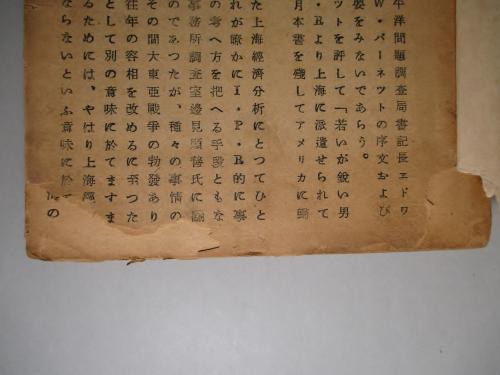 平洋問題調査局書記長エドワ
W・バーネットの序文および
要をみないであらう。
ットを評して「若いが銳い男
・Rより上海に派遣せられて
月本書を殘してアメリカに歸
た上海經濟分析にとつてひと
れが瞭かにI・P・R的に事
の考へ方を把へる手段ともな
事務所調査室邊見
のであつたが、種々の事情の
その間大東亜戰爭の勃發あり
往年の容相を改めるに至つた
として別の意味に於てますま
るためには、やはり上海經
ならないといふ意味に於て
の